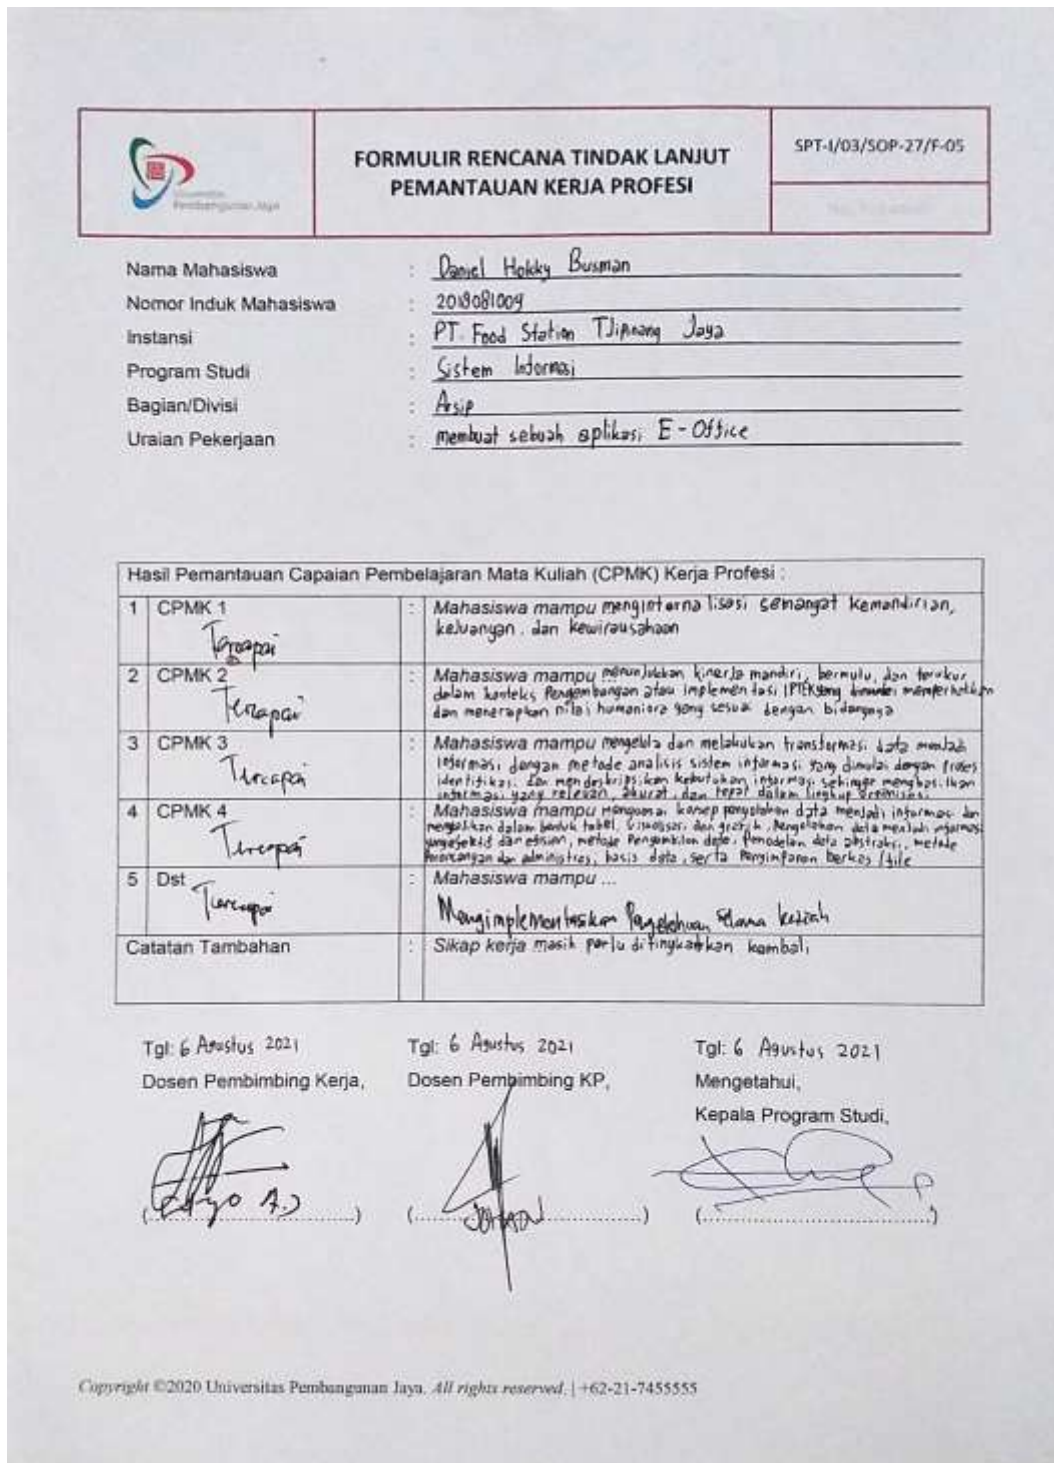 Universitas
Pembangunan Jaya
FORMULIR RENCANA TINDAK LANJUT
PEMANTAUAN KERJA PROFESI
SPT-I/03/SOP-27/F-05
Nama Mahasiswa : Daniel Hokky Busman
Nomor Induk Mahasiswa : 2018081009
Instansi : PT. Food Station TJipinang Jaya
Program Studi : Sistem Informasi
Bagian/Divisi : Arsip
Uraian Pekerjaan : membuat sebuah aplikasi E-Office
Hasil Pemantauan Capaian Pembelajaran Mata Kuliah (CPMK) Kerja Profesi :
1 CPMK 1 : Mahasiswa mampu menginternalisasi semangat kemandirian,
Tercapai keluangan. dan kewirausahaan
2 CPMK 2 : Mahasiswa mampu menunjukkan kinerja mandiri, bermutu, dan terukur
dalam konteks Pengembangan atau implementasi IPTEK yang memperhatikan
Tercapai dan menerapkan nilai humaniora yang sesuai dengan bidangnya
3 CPMK 3 : Mahasiswa mampu mengelola dan melakukan transformasi data menjadi
informasi dengan metode analisis sistem informasi yang dimulai dengan Proses
Tercapai identifikasi dan mendeskripsikan kebutuhan informasi sehingga menghasilkan
informasi yang relevan, akurat, dan tepat dalam lingkup organisasi
4 CPMK 4 : Mahasiswa mampu konsep pengolahan data menjadi informasi dan
dalam bentuk tabel, dan grafik, Pengolahan data menjadi informasi
Tercapai dan efisien, metode Pengambilan data, Pemodelan data abstraksi, metode
Perancangan dan administrasi, basis data, serta Penyimpanan berkas/file
5 Dst : Mahasiswa mampu ...
Tercapai Mengimplementasikan Pengetahuan Selama kuliah
Catatan Tambahan : Sikap kerja masih perlu ditingkatkan kembali
Tgl: 6 Agustus 2021 Tgl: 6 Agustus 2021 Tgl: 6 Agustus 2021
Dosen Pembimbing Kerja, Dosen Pembimbing KP, Mengetahui,
Kepala Program Studi,
Copyright ©2020 Universitas Pembangunan Jaya. All rights reserved. | +62-21-7455555